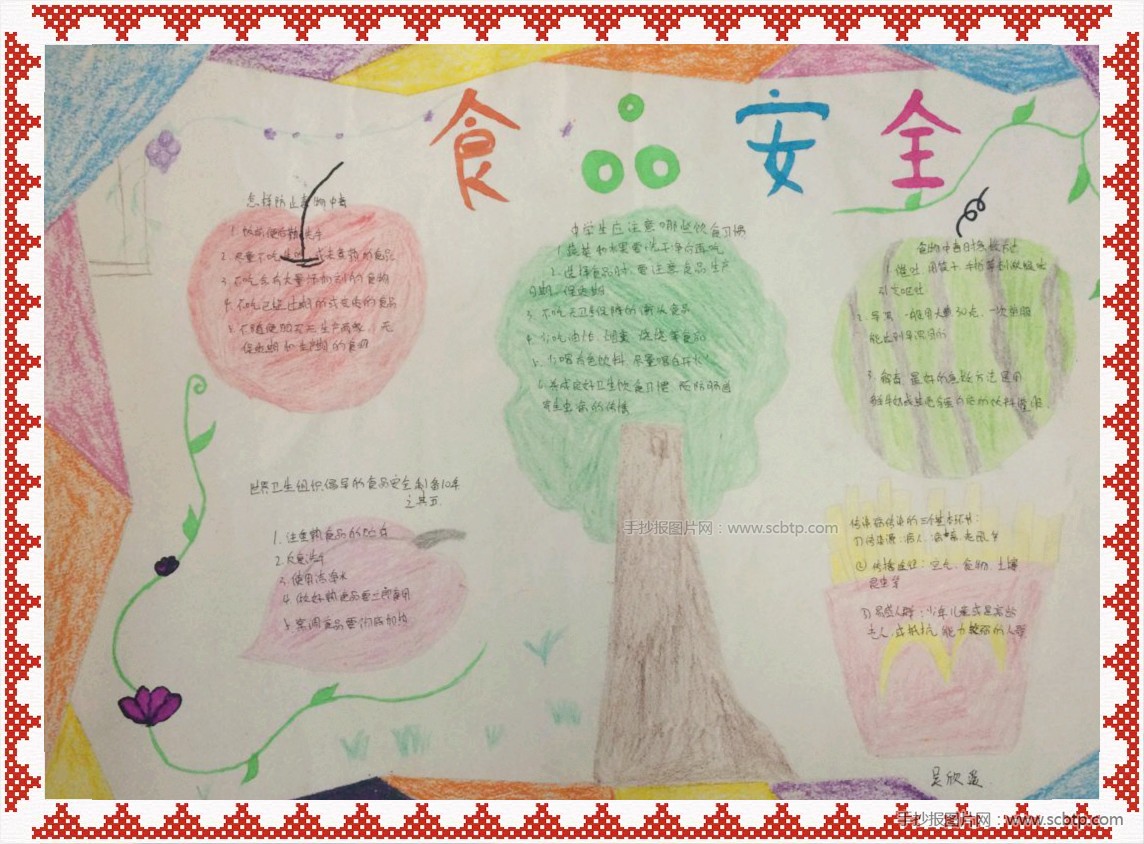 食品安全
怎样防止食物中毒
1. 饭前便后勤洗手
2. 尽量不吃 或未煮熟的食品
3. 不吃含有大量添加剂的食物
4. 不吃已经过期的或变质的食品
5. 不随便购买无生产商家、无
保质期和生产期的食品
中学生应注意哪些饮食习惯
1. 蔬菜和水果要洗干净后再吃
2. 选择食品时,要注意食品生产
日期、保质期
3. 不吃无卫生保障的街头食品
4. 少吃油炸、烟熏、烧烤等食品
5. 少喝有色饮料 尽量喝白开水
6. 养成良好卫生饮食习惯,预防肠道
寄生虫病的传播
食物中毒时急救方法
1. 催吐 用筷子、手指等刺激咽喉
引发呕吐
2. 导泻 一般用大黄30克,一次煎服
能达到导泻目的
3. 解毒 最好的急救方法是用
鲜牛奶或其他含蛋白质的饮料灌服
世界卫生组织倡导的食品安全制备10条
之其五
1. 注意购食品的
2. 反复洗手
3. 使用洁净水
4. 做好的食品要立即食用
5. 家用食品要彻底加热
传染病传染的三个基本环节:
1) 传染源:病人、
② 传播途径:空气、食物、土壤
昆虫等
3) 易感人群:少年儿童或是高龄
老人,或抵抗能力较弱的人群
手抄报图片网:www.scbtp.com
吴欣
手抄报图片网:www.scbtp.com